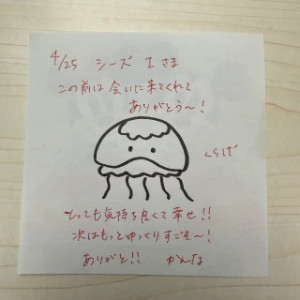 4/25 シーズ Iさま
この前は会いに来てくれて
ありがとう〜!
くらげ
とっても気持ち良くて幸せ!!
次はもっとゆっくりすごそ〜!
ありがと!! かんな